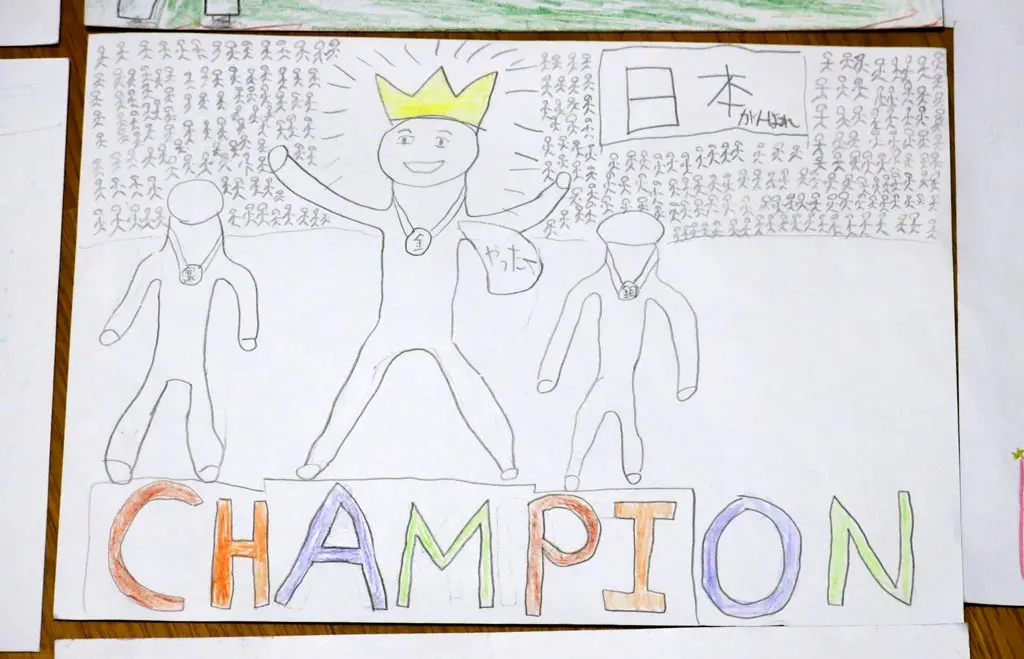 日本
がんばれ
金
やったー
銀
銅
CHAMPION